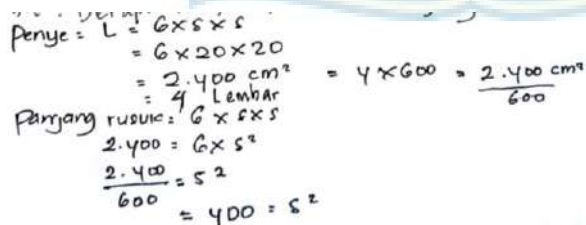 Penye = L = 6 x s x s
= 6 x 20 x 20
= 2.400 cm² = 4 x 600 = 2.400 cm² / 600
= 4 Lembar
Panjang rusuk = 6 x s x s
2.400 = 6 x s²
2.400 / 600 = s²
= 400 = s²